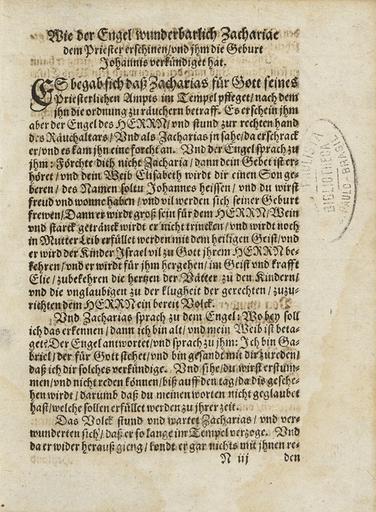 Wie der Engel wunderbarlich Zachariae
dem Priester erschinen/ vnd jhm die Geburt
Johannis verkündiget hat.
ES begab sich daß Zacharias für Gott seines
Priesterlichen Ampts im Tempel pfleget/ nach dem
jhn die ordnung zu räuchern betraff. Es erschein jhm
aber der Engel des HERRN/ vnd stund zur rechten hand
des Räuchaltars/ Vnd als Zacharias jn sahe/ da erschrack
er/ vnd es kam jhn eine forcht an. Vnd der Engel sprach zu
jhm: Förchte dich nicht Zacharia/ dann dein Gebet ist er-
höret/ vnd dein Weib Elisabeth wirdt dir einen Son ge-
beren/ des Namen soltu Johannes heissen/ vnd du wirst
freud vnd wonne haben/ vnd vil werden sich seiner Geburt
frewen/ Dann er wirdt groß sein für dem HERRN/ Wein
vnd starck getränck wirdt er nicht trincken/ vnd wirdt noch
in Mutter Leib erfüllet werden mit dem heiligen Geist/ vnd
er wird der Kinder Israel vil zu Gott jhrem HERRN be-
kehren/ vnd er wirdt für jhm hergehen/ im Geist vnd krafft
Elie/ zubekehren die hertzen der Vätter zu den Kindern/
vnd die vnglaubigen zu der klugheit der gerechten/ zuzu-
richten dem HERRN ein bereit Volck.
Vnd Zacharias sprach zu dem Engel: Wo bey soll
ich das erkennen/ dann ich bin alt/ vnd mein Weib ist beta-
get? Der Engel antwortet/ vnd sprach zu jhm: Ich bin Ga-
briel/ der für Gott stehet/ vnd bin gesandt mit dir zureden/
daß ich dir solches verkündige. Vnd sihe/ du wirst erstum-
men/ vnd nicht reden können/ biß auff den tag/ da dis gesche-
hen wirdt/ darumb daß du meinen worten nicht geglaubet
hast/ welche sollen erfüllet werden zu jhrer zeit.
Das Volck stund vnd wartet Zacharias/ vnd ver-
wunderten sich/ daß er so lange im Tempel verzoge. Vnd
da er wider herauß gieng/ kondt er gar nichts mit jhnen re-
N iij den
BIBLIOTHECA